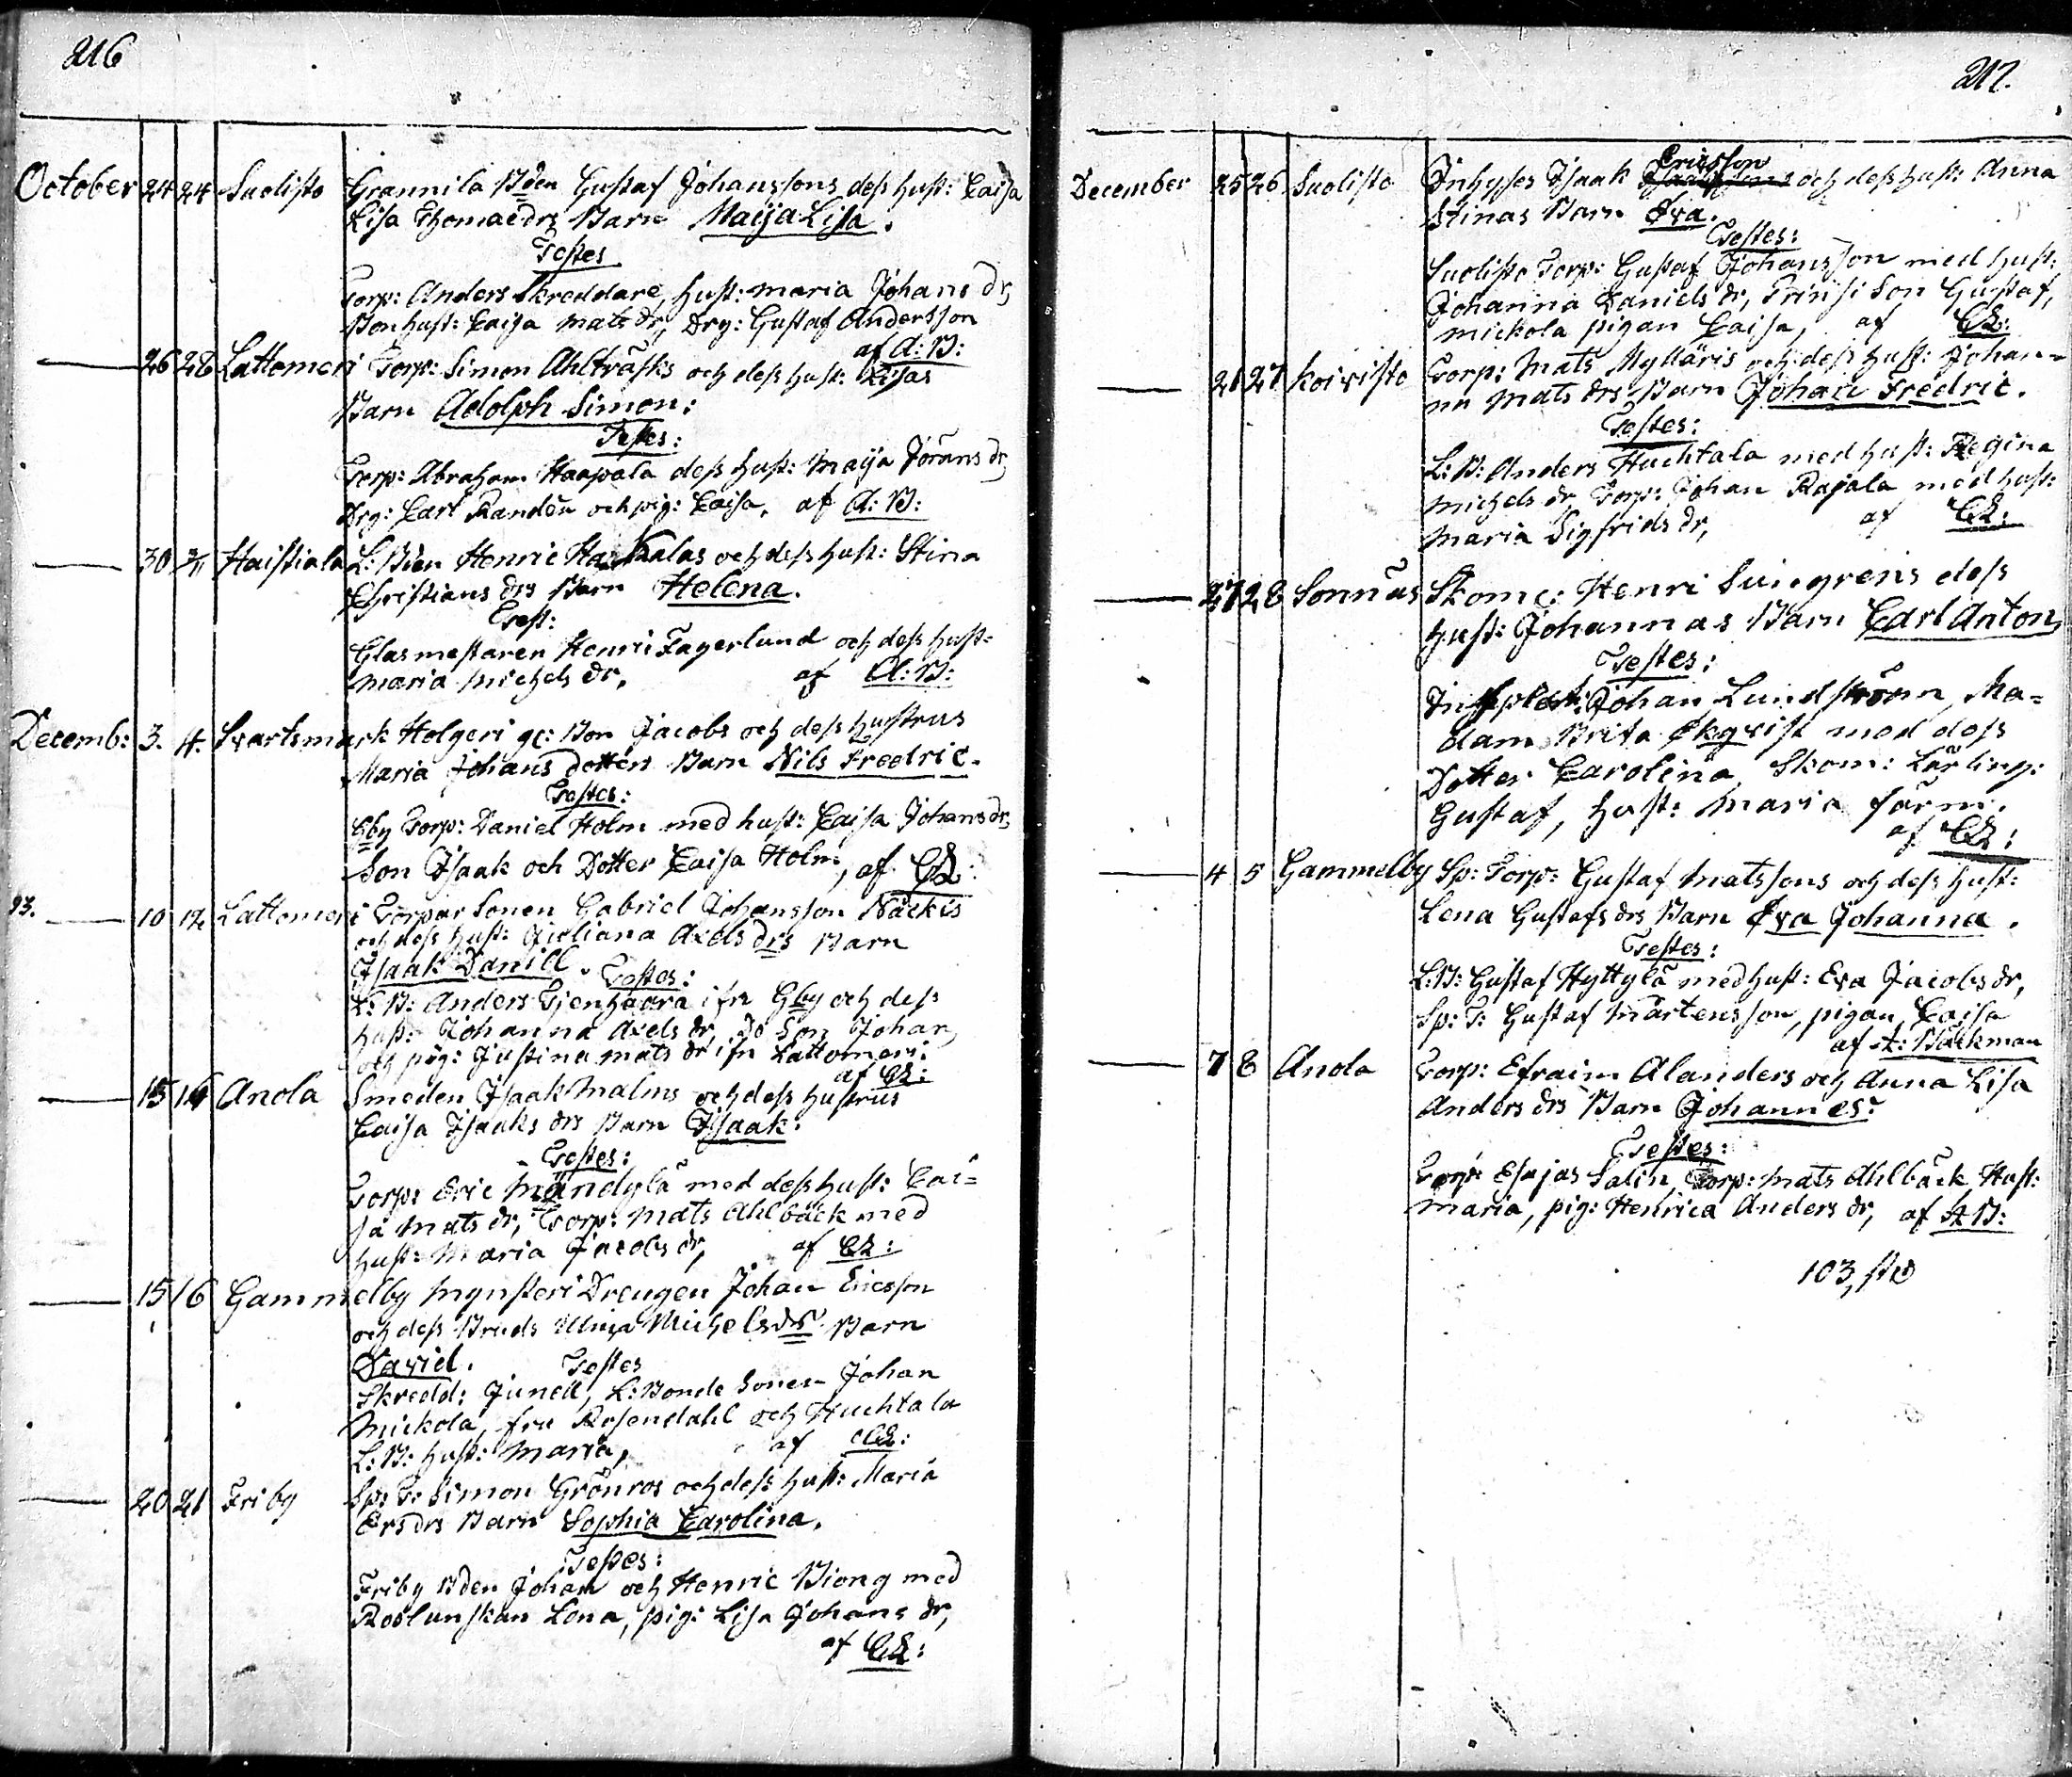 216
October 24 24 Suolisto Grannila Bden Gustaf Johanssons dess hust: Caisa
Lisa Thomaedrs Barn Maija Lisa.
Testes
Torp: Anders Skreddare, hust: Maria Johans dr,
Bonhust: Caisa Mats dr, Drg: Gustaf Andersson
af A: B:
26 28 Lattomeri Torp: Simon Ahlträsks och dess hust: Lisas
Barn Adolph Simon:
Testes:
Torp: Abraham Haapala dess hust: Maija Jörans dr,
Drg: Carl Randén och pig: Caisa, af A: B:
30 31 Haistiala L: Bden Henric Kalas och dess hust: Stina
Christians drs Barn Helena.
Test:
Glasmestaren Henric Fagerlund och dess hust:
Maria Michels dr, af A: B:
Decemb: 3. 4. Svartsmark Holgeri gc: Bon Jacobs och dess hustrus
Maria Johans dotters Barn Nils Fredric.
Testes:
Gby Torp: Daniel Holm med hust: Caisa Johans dr,
Son Isaak och Dotter Caisa Holm, af CL:
93. 10 12 Lattomeri Torpar Sonen Gabriel Johansson Näckis
och dess hust: Juliana Axels drs Barn
Isaak Daniel. Testes:
L: B: Anders Tjenhaara ifr Gby och dess
hust: Johanna Axels dr, Do Son Johan,
och pig: Justina Mats dr ifr Lattomeri:
af CL:
15 16 Anola Smeden Isaak Malms och dess hustrus
Caisa Isaaks drs Barn Isaak:
Testes:
Torp: Eric Mändylä med dess hust: Cai=
sa Mats dr, Torp: Mats Ahlbäck med
hust: Maria Jacobs dr, af CL:
15 16 Gammelby Mynsteri Drengen Johan Ericsson
och dess Bruds Ulrica Michelsdrs Barn
David. Testes
Skredd: Junell, L: Bonde Sonen Johan
Mickola, fru Rosendahl och Huchtala
L: B: hust: Maria, af CL:
20 21 Friby Sp: T: Simon Grönros och dess hust: Maria
Ersdrs Barn Sophia Carolina.
Testes:
Friby Bden Johan och Henric Biong med
Roslunskan Lena, pig: Lisa Johans dr,
af CL:
217.
December 25 26 Suolisto Inhyses Isaak Ericsson och dess hust: Anna
Stinas Barn Eva.
Testes:
Suolisto Torp: Gustaf Johansson med hust:
Johanna Daniels dr, Prinsi Son Gustaf,
Mickola pigan Caisa, af CL:
26 27 Koivisto Torp: Mats Mylläris och dess hust: Johan=
na Mats drs Barn Johan Fredric.
Testes:
L: B: Anders Huchtala med hust: Regina
Michels dr Torp: Johan Rajala med hust:
Maria Sigfrids dr, af CL:
27 28 Sonnäs Skom: Henri Sungrens dess
hust: Johannas Barn Carl Anton,
Testes:
Johan Lundström, Ma=
dam Brita Ekqvist med dess
Dotter Carolina, Skom: Lärling:
Gustaf, hust: Maria Färm.
af CL:
4 5 Gammelby Sp: Torp: Gustaf Matssons och dess hust:
Lena Gustafs drs Barn Eva Johanna.
Testes:
L: B: Gustaf Hyttylä med hust: Eva Jacobs dr,
Sp: T: Gustaf Mårtensson, pigan Caisa
af A: Bäckman
7 8 Anola Torp: Efraim Alanders och Anna Lisa
Anders drs Barn Johannes:
Testes:
Torp: Esajas Salin, Torp: Mats Ahlbäck Hust:
Maria, pig: Henrica Anders dr, af A B:
103, st